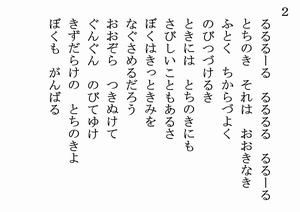 2
るるるーる　るるるる　るるーる
とちのき　それは　おおきなき
ふとく　ちからづよく
のびつづけるき
ときには　とちのきにも
さびしいこともあるさ
ぼくはきっときみを
なぐさめるだろう
おおぞら　つきぬけて
ぐんぐん　のびてゆけ
きずだらけの　とちのきよ
ぼくも　がんばる